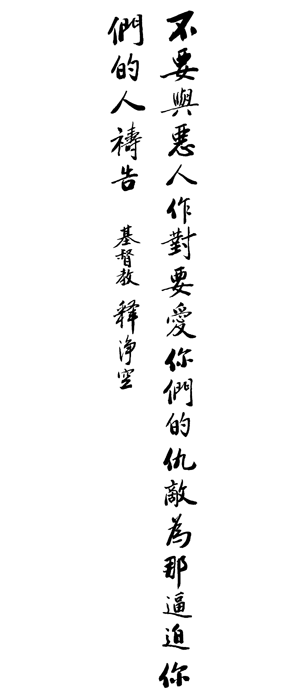 不要與惡人作對要愛你們的仇敵為那逼迫你
們的人禱告 基督教 釋淨空